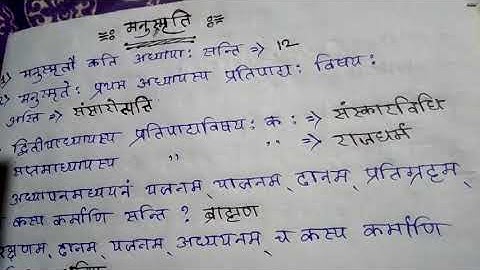 मनुस्मृति
1) मनुस्मृतौ कति अध्यायाः सन्ति ⇒ 12
2) मनुस्मृतेः प्रथम अध्यायस्य प्रतिपाद्यः विषयः
अस्ति ⇒ संसारोत्पत्ति
द्वितीयाध्यायस्य प्रतिपाद्यविषयः कः ⇒ संस्कारविधि
सप्तमाध्यायस्य " " ⇒ राजधर्म
अध्यापनमध्ययनं यजनम्, याजनम्, दानम्, प्रतिग्रहम्
कस्य कर्माणि सन्ति ? ब्राह्मण
रक्षणम्, दानम्, यजनम्, अध्ययनम् च कस्य कर्माणि